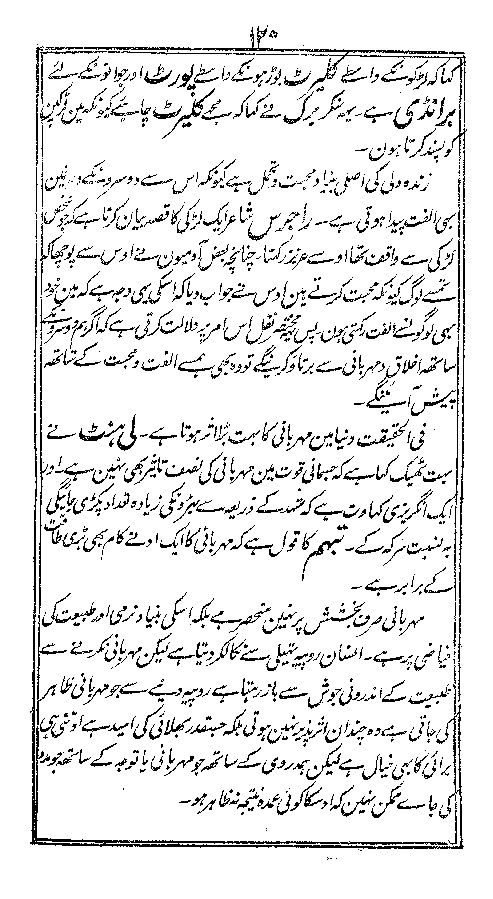 ۱۲۰
کہا کہ لڑکونکے واسطے کلیرٹ بوڑہونکے واسطے پورٹ اور جوانونکے لئے
برانڈی ہے۔ بہ نگر برگ نے کہا کہ مجھے کلیرٹ چاہئے کیونکہ مین لڑکپن
کو پسند کرتا ہون۔
زندہ دلی کی اصلی بنیاد محبت و تحمل ہے کیونکہ اس سے دوسرونکے دل مین
بھی الفت پیدا ہوتی ہے۔ راجرس شاعر ایک لڑکی کا قصہ بیان کرتا ہے کہ جو شخص
لڑکی سے واقف تھا اوسے عزیز رکھتا۔ چنانچہ بعض آدمیون نے اوس سے پوچھا کہ
تمسے لوگ کیونکہ محبت کرتے ہین اوس نے جواب دیا کہ اسکی یہی وجہ ہے کہ مین خود
بھی لوگونسے الفت رکھتی ہون۔ پس یہ مختصر نقل اس امر پر دلالت کرتی ہے کہ اگر ہم دوسرونکے
ساتھہ اخلاق و مہربانی سے برتاؤ کرینگے تو وہ بھی ہمسے الفت و محبت کے ساتھہ
پیش آئینگے۔
فی الحقیقت دنیا مین مہربانی کا بہت بڑا اثر ہوتا ہے۔ لی ہنٹ نے
بہت ٹھیک کہا ہے کہ جسمانی قوت مین مہربانی کی نصف تاثیر بھی نہین ہے۔ اور
ایک انگریزی کہاوت ہے کہ شہد کے ذریعہ سے بہڑونکی زیادہ تعداد پکڑی جائیگی
بہ نسبت سرکہ کے۔ بنتھم کا قول ہے کہ مہربانی کا ایک ادنے کام بھی بڑی طاقت
کے برابر ہے۔
مہربانی صرف بخشش پر نہین منحصر ہے بلکہ اسکی بنیاد نرمی اور طبیعت کی
فیاضی پر ہے۔ انسان روپیہ تہیلی سے نکالکر دیتا ہے لیکن مہربانی کرنے سے
طبیعت کے اندرونی جوش سے باز رہتا ہے روپیہ دینے سے جو مہربانی ظاہر
کی جاتی ہے وہ چندان اثر پذیر نہین ہوتی بلکہ جسقدر بھلائی کی امید ہے اوتنی ہی
برائی کا بھی خیال ہے لیکن ہمدردی کے ساتھہ جو مہربانی یا توجہ کے ساتھہ جو مدد
کی جاے ممکن نہین کہ اوسکا کوئی عمدہ نتیجہ نہ ظاہر ہو۔